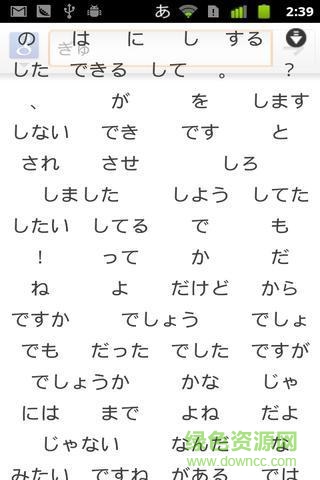 あ 2:39
ぎゅ
の は に し する
した できる して 。 ?
、 が を します
しない でき です と
され させ しろ
しました しよう してた
したい してる で も
! って か だ
ね よ だけど から
ですか でしょう でしょ
でも だった でした ですが
でしょうか かな じゃ
には まで よね だよ
じゃない なんだ な
みたい ですね がある では
绿色资源网
www.downcc.com